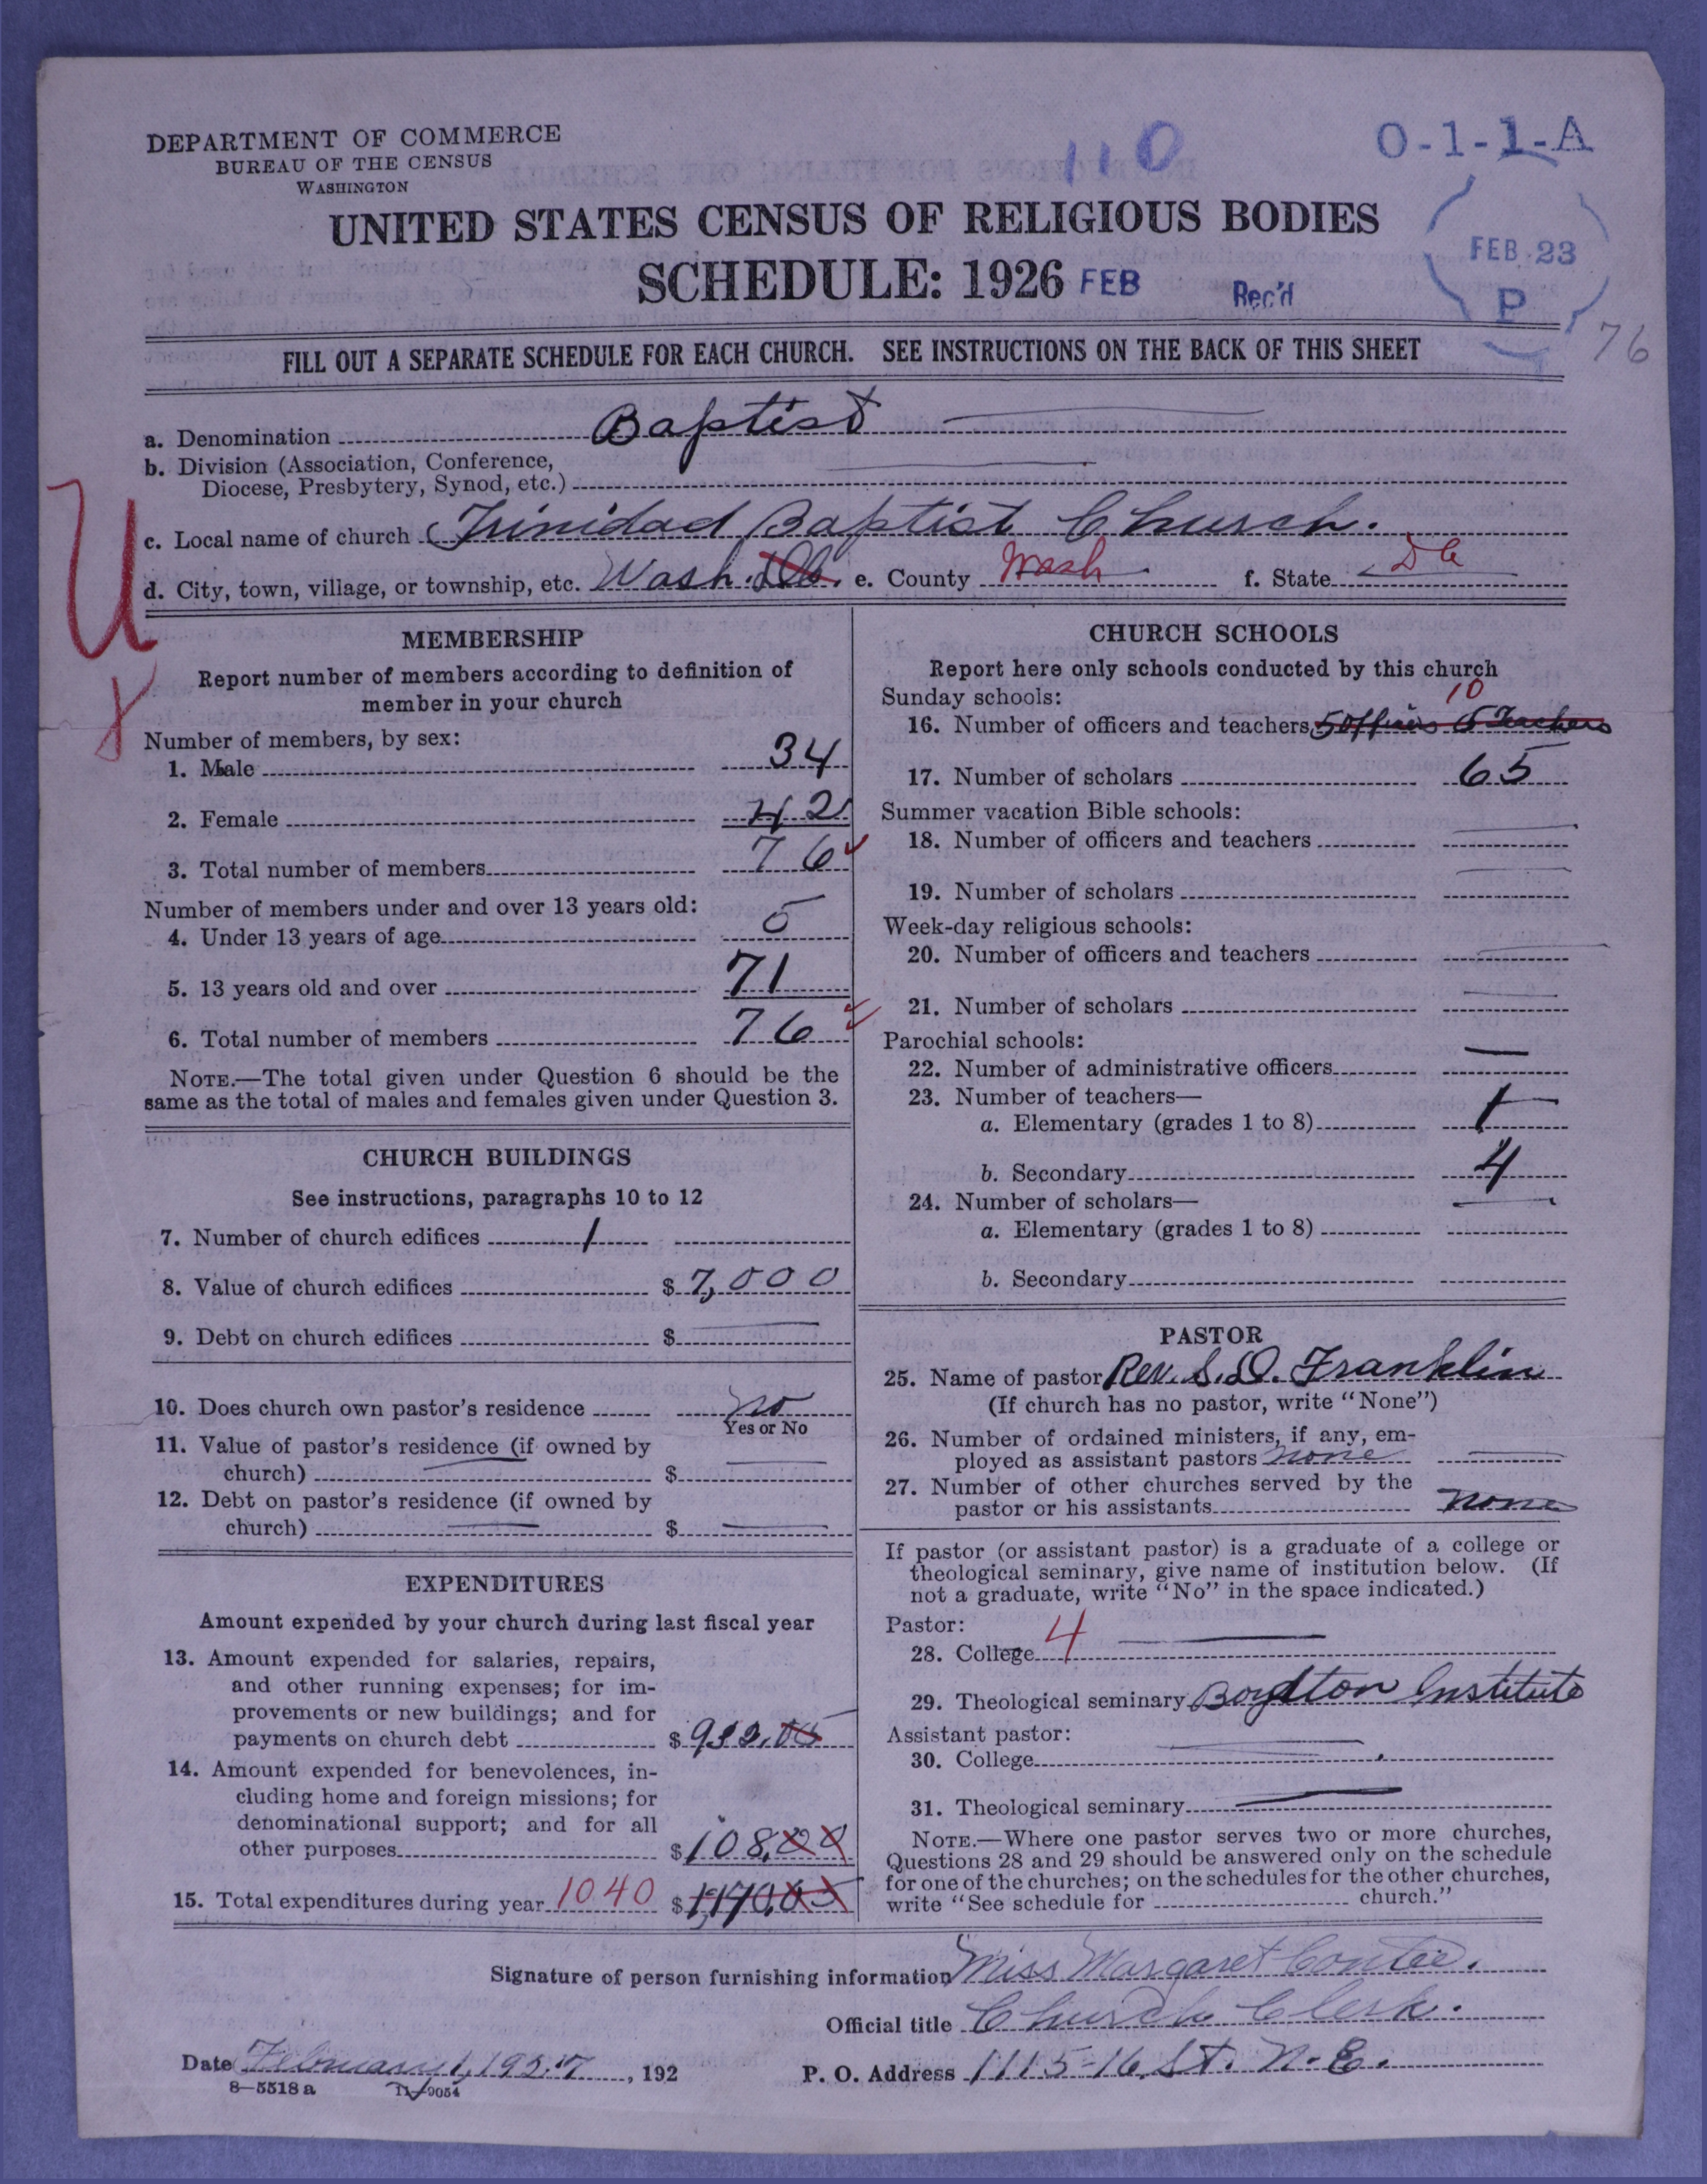 DEPARTMENT OF COMMERCE
BUREAU OF THE CENSUS
WASHINGTON
110
O-1-1-A
UNITED STATES CENSUS OF RELIGIOUS BODIES
SCHEDULE: 1926 FEB Rec'd
FEB 23
P
76
FILL OUT A SEPARATE SCHEDULE FOR EACH CHURCH. SEE INSTRUCTIONS ON THE BACK OF THIS SHEET
a. Denomination Baptist
b. Division (Association, Conference,
Diocese, Presbytery, Synod, etc.)
c. Local name of church Trinidad Baptist Church.
d. City, town, village, or township, etc. Wash. D.C. e. County Wash f. State DC
U
MEMBERSHIP
Report number of members according to definition of
member in your church
Number of members, by sex:
1. Male 34
2. Female 42
3. Total number of members 76
Number of members under and over 13 years old:
4. Under 13 years of age 5
5. 13 years old and over 71
6. Total number of members 76
NOTE.—The total given under Question 6 should be the
same as the total of males and females given under Question 3.
CHURCH BUILDINGS
See instructions, paragraphs 10 to 12
7. Number of church edifices 1
8. Value of church edifices $ 7,000
9. Debt on church edifices $
10. Does church own pastor's residence no
Yes or No
11. Value of pastor's residence (if owned by
church) $
12. Debt on pastor's residence (if owned by
church) $
EXPENDITURES
Amount expended by your church during last fiscal year
13. Amount expended for salaries, repairs,
and other running expenses; for im-
provements or new buildings; and for
payments on church debt $ 932.05
14. Amount expended for benevolences, in-
cluding home and foreign missions; for
denominational support; and for all
other purposes $ 108.00
15. Total expenditures during year 1040 $
CHURCH SCHOOLS
Report here only schools conducted by this church
Sunday schools:
10
16. Number of officers and teachers 5 officers 5 Teachers
17. Number of scholars 65
Summer vacation Bible schools:
18. Number of officers and teachers
19. Number of scholars
Week-day religious schools:
20. Number of officers and teachers
21. Number of scholars
Parochial schools:
22. Number of administrative officers
23. Number of teachers—
a. Elementary (grades 1 to 8) 1
b. Secondary 4
24. Number of scholars—
a. Elementary (grades 1 to 8)
b. Secondary
PASTOR
25. Name of pastor Rev. S. D. Franklin
(If church has no pastor, write "None")
26. Number of ordained ministers, if any, em-
ployed as assistant pastors none
27. Number of other churches served by the
pastor or his assistants none
If pastor (or assistant pastor) is a graduate of a college or
theological seminary, give name of institution below. (If
not a graduate, write "No" in the space indicated.)
Pastor:
28. College 4
29. Theological seminary Boydton Institute
Assistant pastor:
30. College
31. Theological seminary
NOTE.—Where one pastor serves two or more churches,
Questions 28 and 29 should be answered only on the schedule
for one of the churches; on the schedules for the other churches,
write "See schedule for church."
Signature of person furnishing information Miss Margaret Contee.
Official title Church Clerk.
Date February 1, 1927, 192 P. O. Address 1115-16, St. N.E.
8-5518 a 11-9054